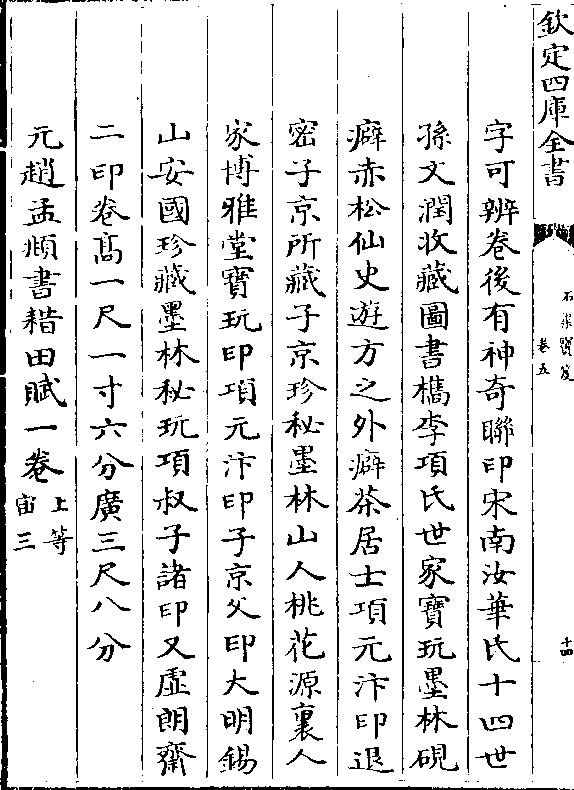 欽定四庫全書
石渠寶笈
卷五
十四
字可辨卷後有神奇聯印宋南汝華氏十四世
孫文潤收藏圖書檇李項氏世家寶玩墨林硯
癖赤松仙史遊方之外癖茶居士項元汴印退
密子京所藏子京珍秘墨林山人桃花源裏人
家博雅堂寶玩印項元汴印子京父印大明錫
山安國珍藏墨林秘玩項叔子諸印又虛朗齋
二印卷髙一尺一寸六分廣三尺八分
元趙孟頫書耤田賦一卷上等
宙三